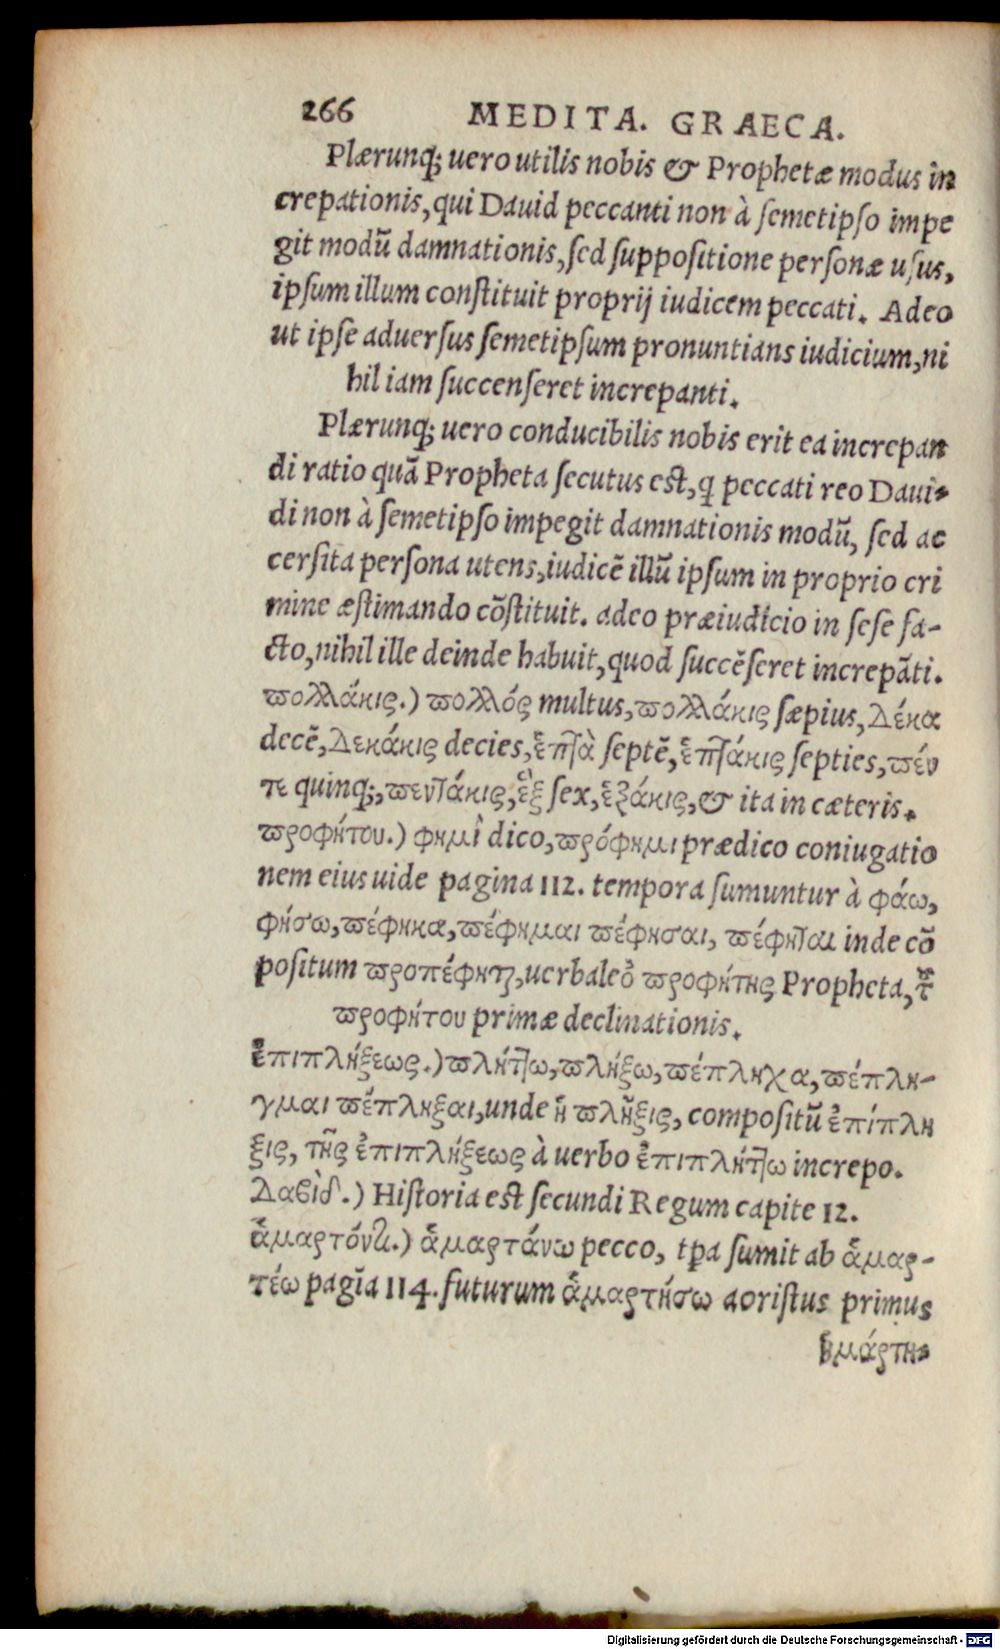 266 MEDITA. GRAECA.
Plærunq; uero utilis nobis & Prophetæ modus in
crepationis, qui Dauid peccanti non à semetipso impe
git modū damnationis, sed suppositione personæ usus,
ipsum illum constituit proprij iudicem peccati. Adeo
ut ipse aduersus semetipsum pronuntians iudicium, ni
hil iam succenseret increpanti.
Plærunq; uero conducibilis nobis erit ea increpan
di ratio quā Propheta secutus est, q peccati reo Daui-
di non à semetipso impegit damnationis modū, sed ac
cersita persona utens, iudicē illū ipsum in proprio cri
mine æstimando cōstituit. adeo præiudicio in sese fa-
cto, nihil ille deinde habuit, quod succēseret increpāti.
πολλάκις.) πολλός multus, πολλάκις sæpius, δέκα
decē, δεκάκις decies, ἑπτὰ septē, ἑπτάκις septies, πέν
τε quinq;, πεντάκις, ἓξ sex, ἑξάκις, & ita in cæteris.
προφήτου.) φημὶ dico, πρόφημι prædico coniugatio
nem eius uide pagina 112. tempora sumuntur à φάω,
φήσω, πέφηκα, πέφημαι πέφησαι, πέφηται inde cō
positum προπέφηται, uerbale ὁ προφήτης Propheta, τοῦ
προφήτου primæ declinationis.
ἐπιπλήξεως.) πλήττω, πλήξω, πέπληχα, πέπλη-
γμαι πέπληξαι, unde ἡ πλῆξις, compositū ἐπίπλη
ξις, τῆς ἐπιπλήξεως à uerbo ἐπιπλήττω increpo.
Δαβὶδ.) Historia est secundi Regum capite 12.
ἁμαρτόντι.) ἁμαρτάνω pecco, tpa sumit ab ἁμαρ-
τέω pagīa 114. futurum ἁμαρτήσω aoristus primus
ἡμάρτη-
Digitalisierung gefördert durch die Deutsche Forschungsgemeinschaft - DFG